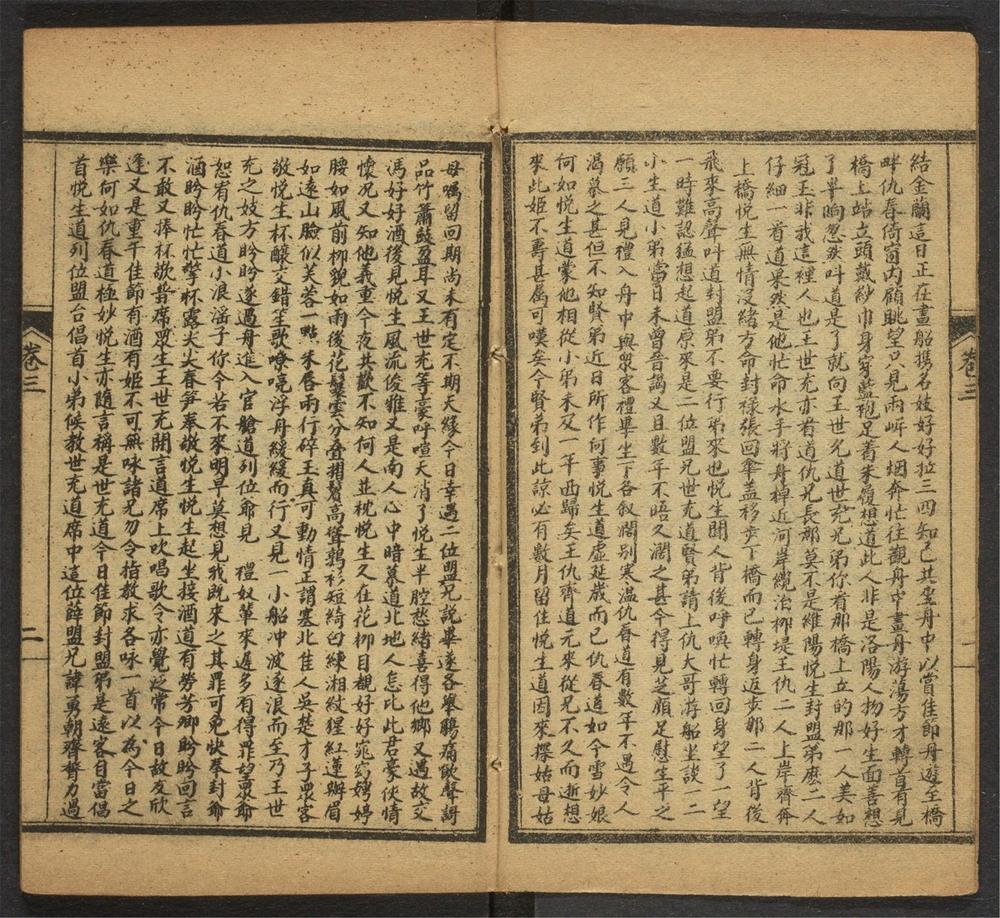 結金蘭這日正在畫船攜名妓好好拉三四知己共坐舟中以賞佳節舟遊至橋
畔仇春倚窗內顧眺望只見兩岍人烟奔忙往觀舟中畫舟游蕩方才轉首有見
橋上站立頭戴紗巾身穿藍袍足着朱履想道此人非是洛陽人物好生面善想
了半晌忽然叫道是了就向王世充道世充兄弟你看那橋上立的那一人美如
冠玉非我這裡人也王世充亦看道仇兄長都莫不是維陽悅生封盟弟麼二人
仔細一看道果然是他忙命水手將舟棹近河岸纜泊柳堤王仇二人上岸齊奔
上橋悅生無情沒緒方命封祿張回傘盖移步下橋而已轉身返步那二人背後
飛來高聲叫道封盟弟不要行弟來也悅生聞人背後呼喚忙轉回身望了一望
一時難認猛想起道原來是二位盟兄世充道賢弟請上仇大哥游船坐談一二
小生道小弟當日未曾晉謁又且數年不晤久濶之甚今得見芝顏足慰生平之
願三人見禮入舟中與眾客禮畢坐下各叙濶别寒溫仇春道有數年不遇令人
渴慕之甚但不知賢弟近日所作何事悅生道虛延歲而已仇春道如今雪妙娘
何如悅生道蒙他相從小弟未及一年西歸矣王仇齊道元來從兄不久而逝想
來此姬不壽甚屬可嘆矣今賢弟到此諒必有數月留住悅生道因來探姑母姑
卷三
一
母囑留回期尚未有定不期天緣今日幸遇二位盟兄說畢遂各舉觴痛飲聲詞
品竹簫鼓盈耳又王世充等豪呼喧天消了悅生半腔愁緒喜得他鄉又遇故交
馮好好酒後見悅生風流俊雅又是南人心中暗慕道北地人怎比此君豪俠情
懷况又知他義重今夜共歡不知何人並枕悅生久在花柳目覩好好窕窈嬝婷
腰如風前柳貌如雨後花鬟雲分叠捰鬢高聳鵝衫短綺白練湘紋猩紅蓮瓣眉
如遠山臉似芙蓉一點朱唇兩行碎玉真可動情正謂塞北佳人吳楚才子眾客
敬悅生杯釀交錯笙歌嘹喨浮舟緩緩而行又見一小船冲波逐浪而至乃王世
充之妓方盻盻遂過舟進入官艙道列位爺見禮奴輩來遲多有得罪望眾爺
恕宥仇春道小浪滛子你今若不來明早莫想見我既來之其罪可免快奉封爺
酒盻盻忙忙擎杯露尖尖春笋奉敬悅生悅生起坐接酒道有勞芳卿盻盻回言
不敢又捧杯歘普席眾坐王世充開言道席上吹唱歌令亦覺泛常今日故友欣
逢又是重午佳節有酒有姬不可無咏諸兄勿令指教求各咏一首以為今日之
樂何如仇春道極妙悅生亦隨言稱是世充道今日佳節封盟弟是遠客日當倡
首悅生道列位盟台倡首小弟候教世充道席中這位薛盟兄諱勇朝齊膂力過
卷三
二